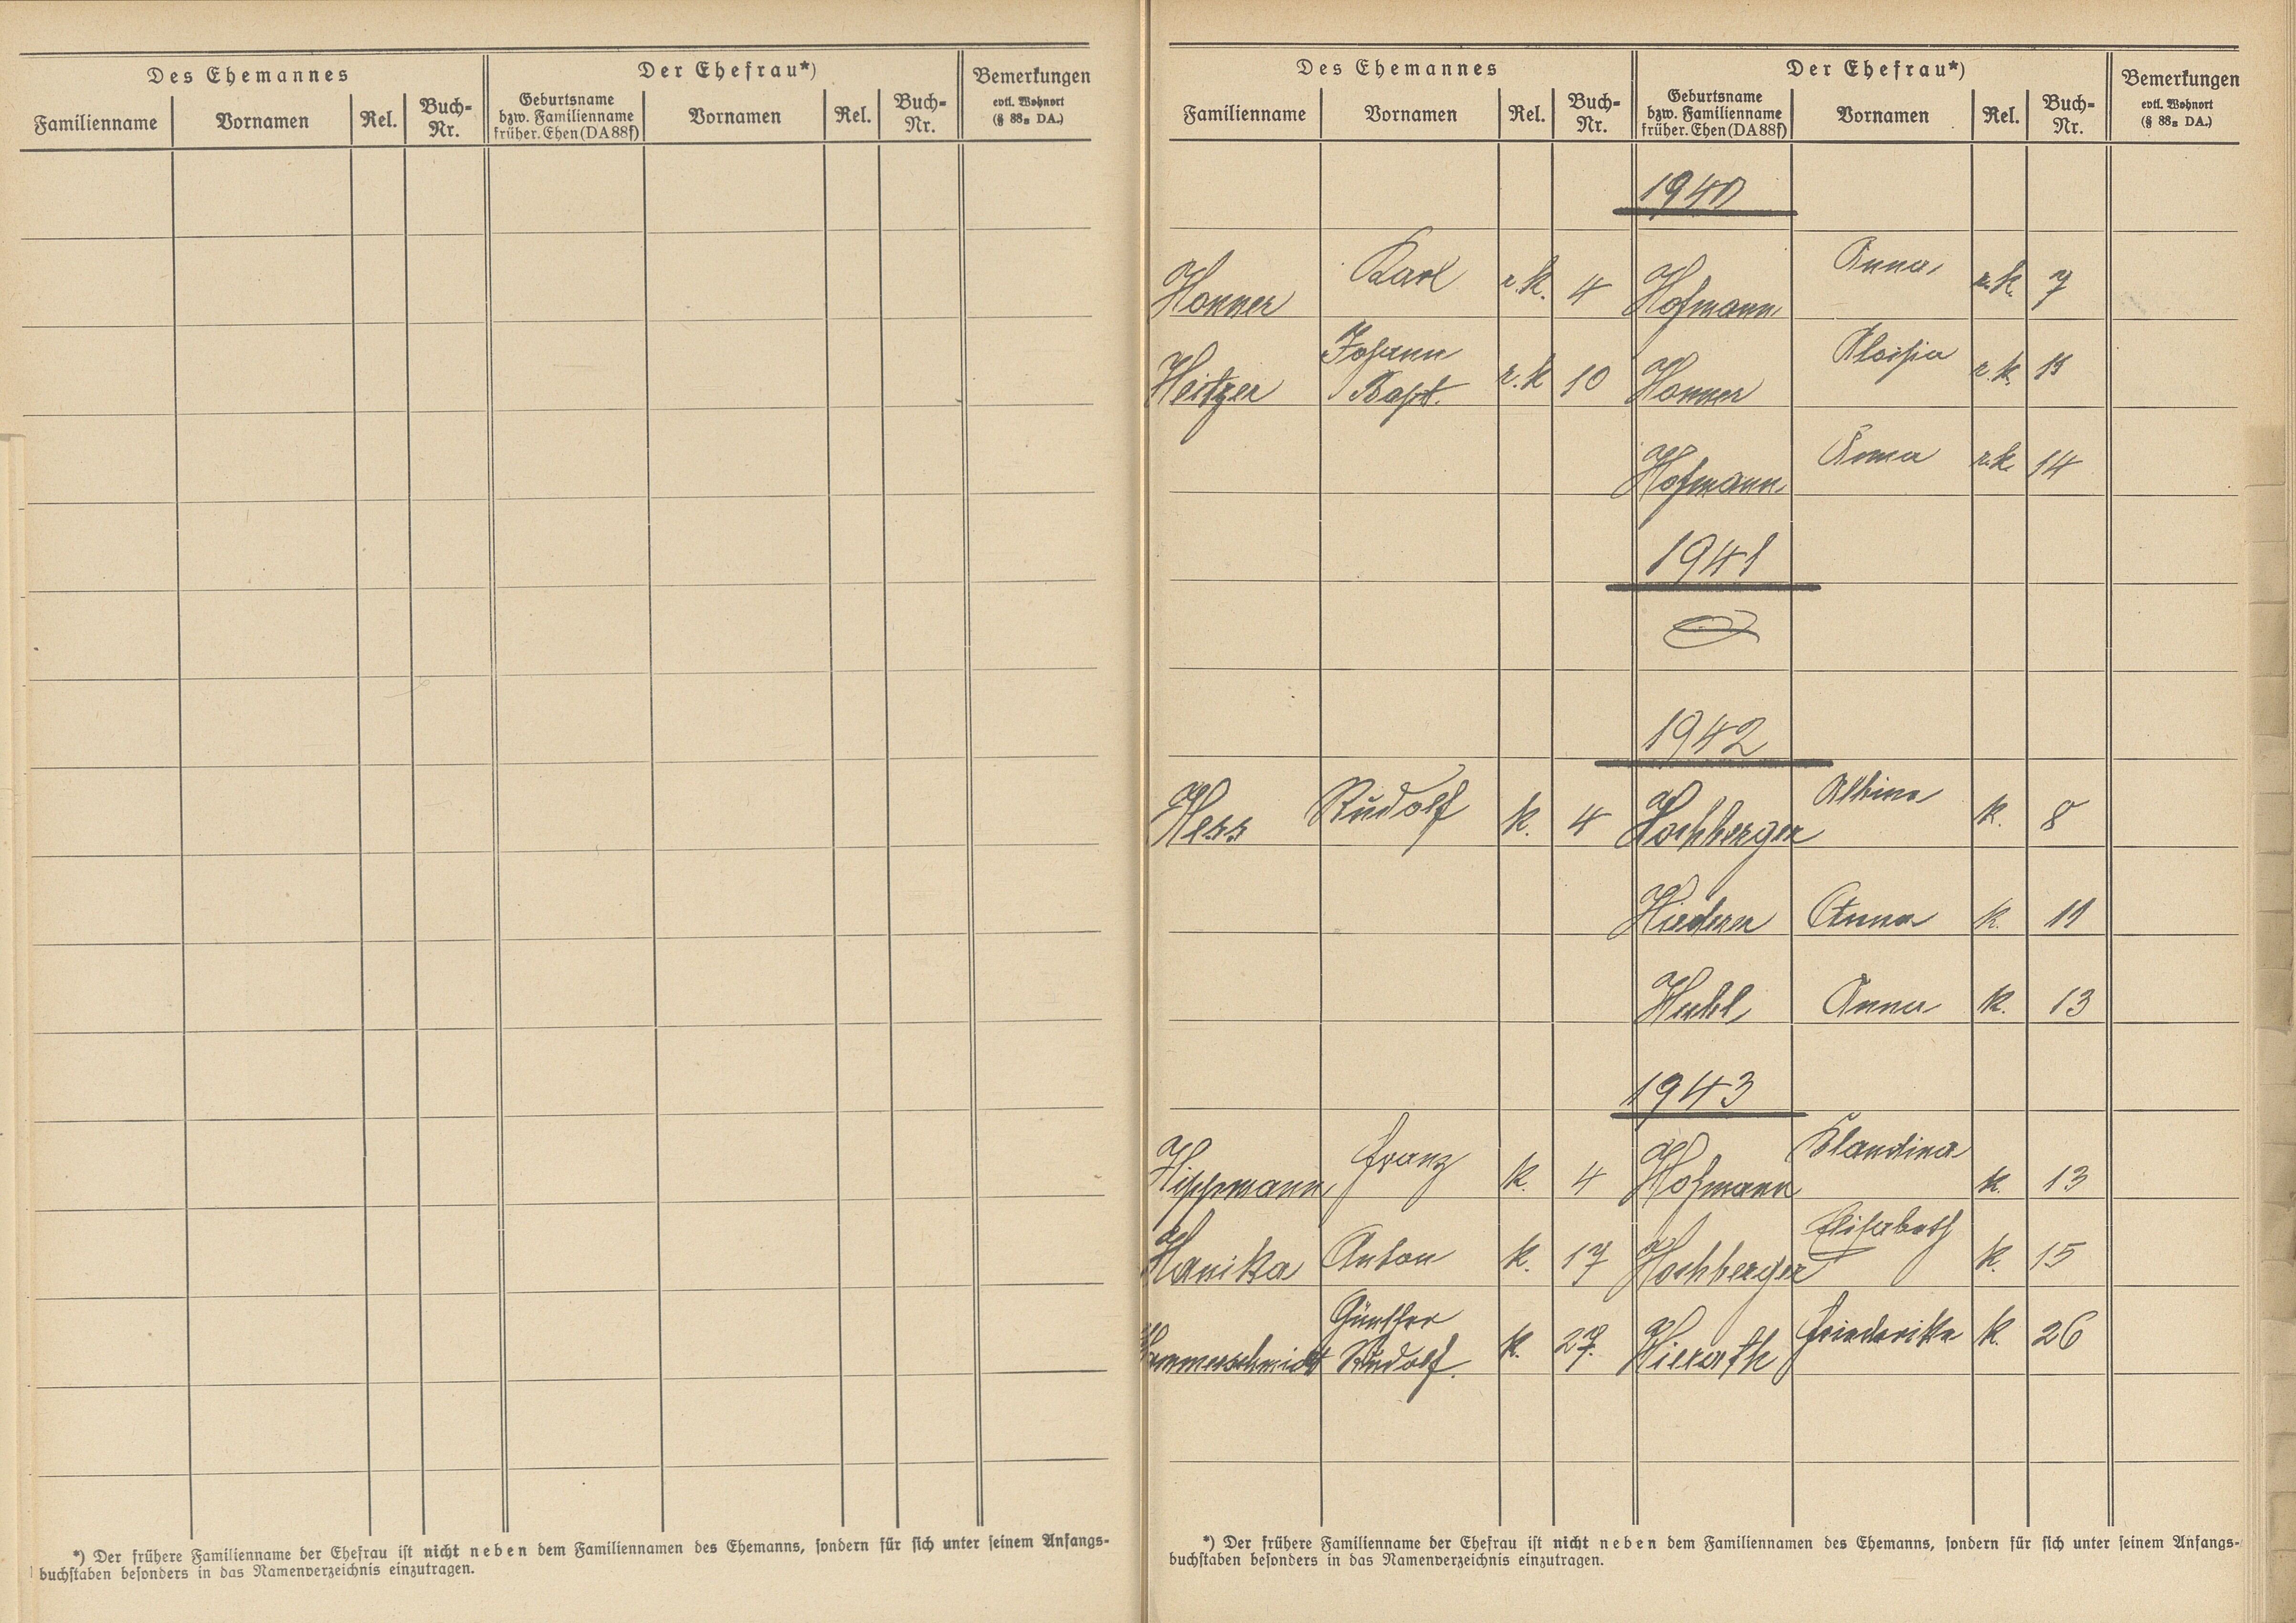 Des Ehemannes Der Ehefrau*) Bemerkungen
evtl. Wohnort
(§ 88₈ DA.)
Familienname Vornamen Rel. Buch-
Nr. Geburtsname
bzw. Familienname
früher. Ehen (DA 88f) Vornamen Rel. Buch-
Nr.
*) Der frühere Familienname der Ehefrau ist nicht neben dem Familiennamen des Ehemanns, sondern für sich unter seinem Anfangs-
buchstaben besonders in das Namenverzeichnis einzutragen.
Des Ehemannes Der Ehefrau*) Bemerkungen
evtl. Wohnort
(§ 88₈ DA.)
Familienname Vornamen Rel. Buch-
Nr. Geburtsname
bzw. Familienname
früher. Ehen (DA 88f) Vornamen Rel. Buch-
Nr.
1940
Honner Karl r.k. 4 Hofmann Anna r.k. 7
Heitzer Johann
Bapt. r.k 10 Honner Aloisia r.k. 15
Hofmann Anna r.k. 14
1941
1942
Hess Rudolf k. 4 Hochberger Albina k. 8
Hiederer Anna k. 11
Huhl Anna k. 13
1943
Hippmann Franz k. 4 Hofmann Klaudina k. 13
Hanika Anton k. 17 Hochberger Elisabeth k. 15
Hammerschmidt Günther
Rudolf. k. 27. Hierath Friederike k. 26
*) Der frühere Familienname der Ehefrau ist nicht neben dem Familiennamen des Ehemanns, sondern für sich unter seinem Anfangs-
buchstaben besonders in das Namenverzeichnis einzutragen.